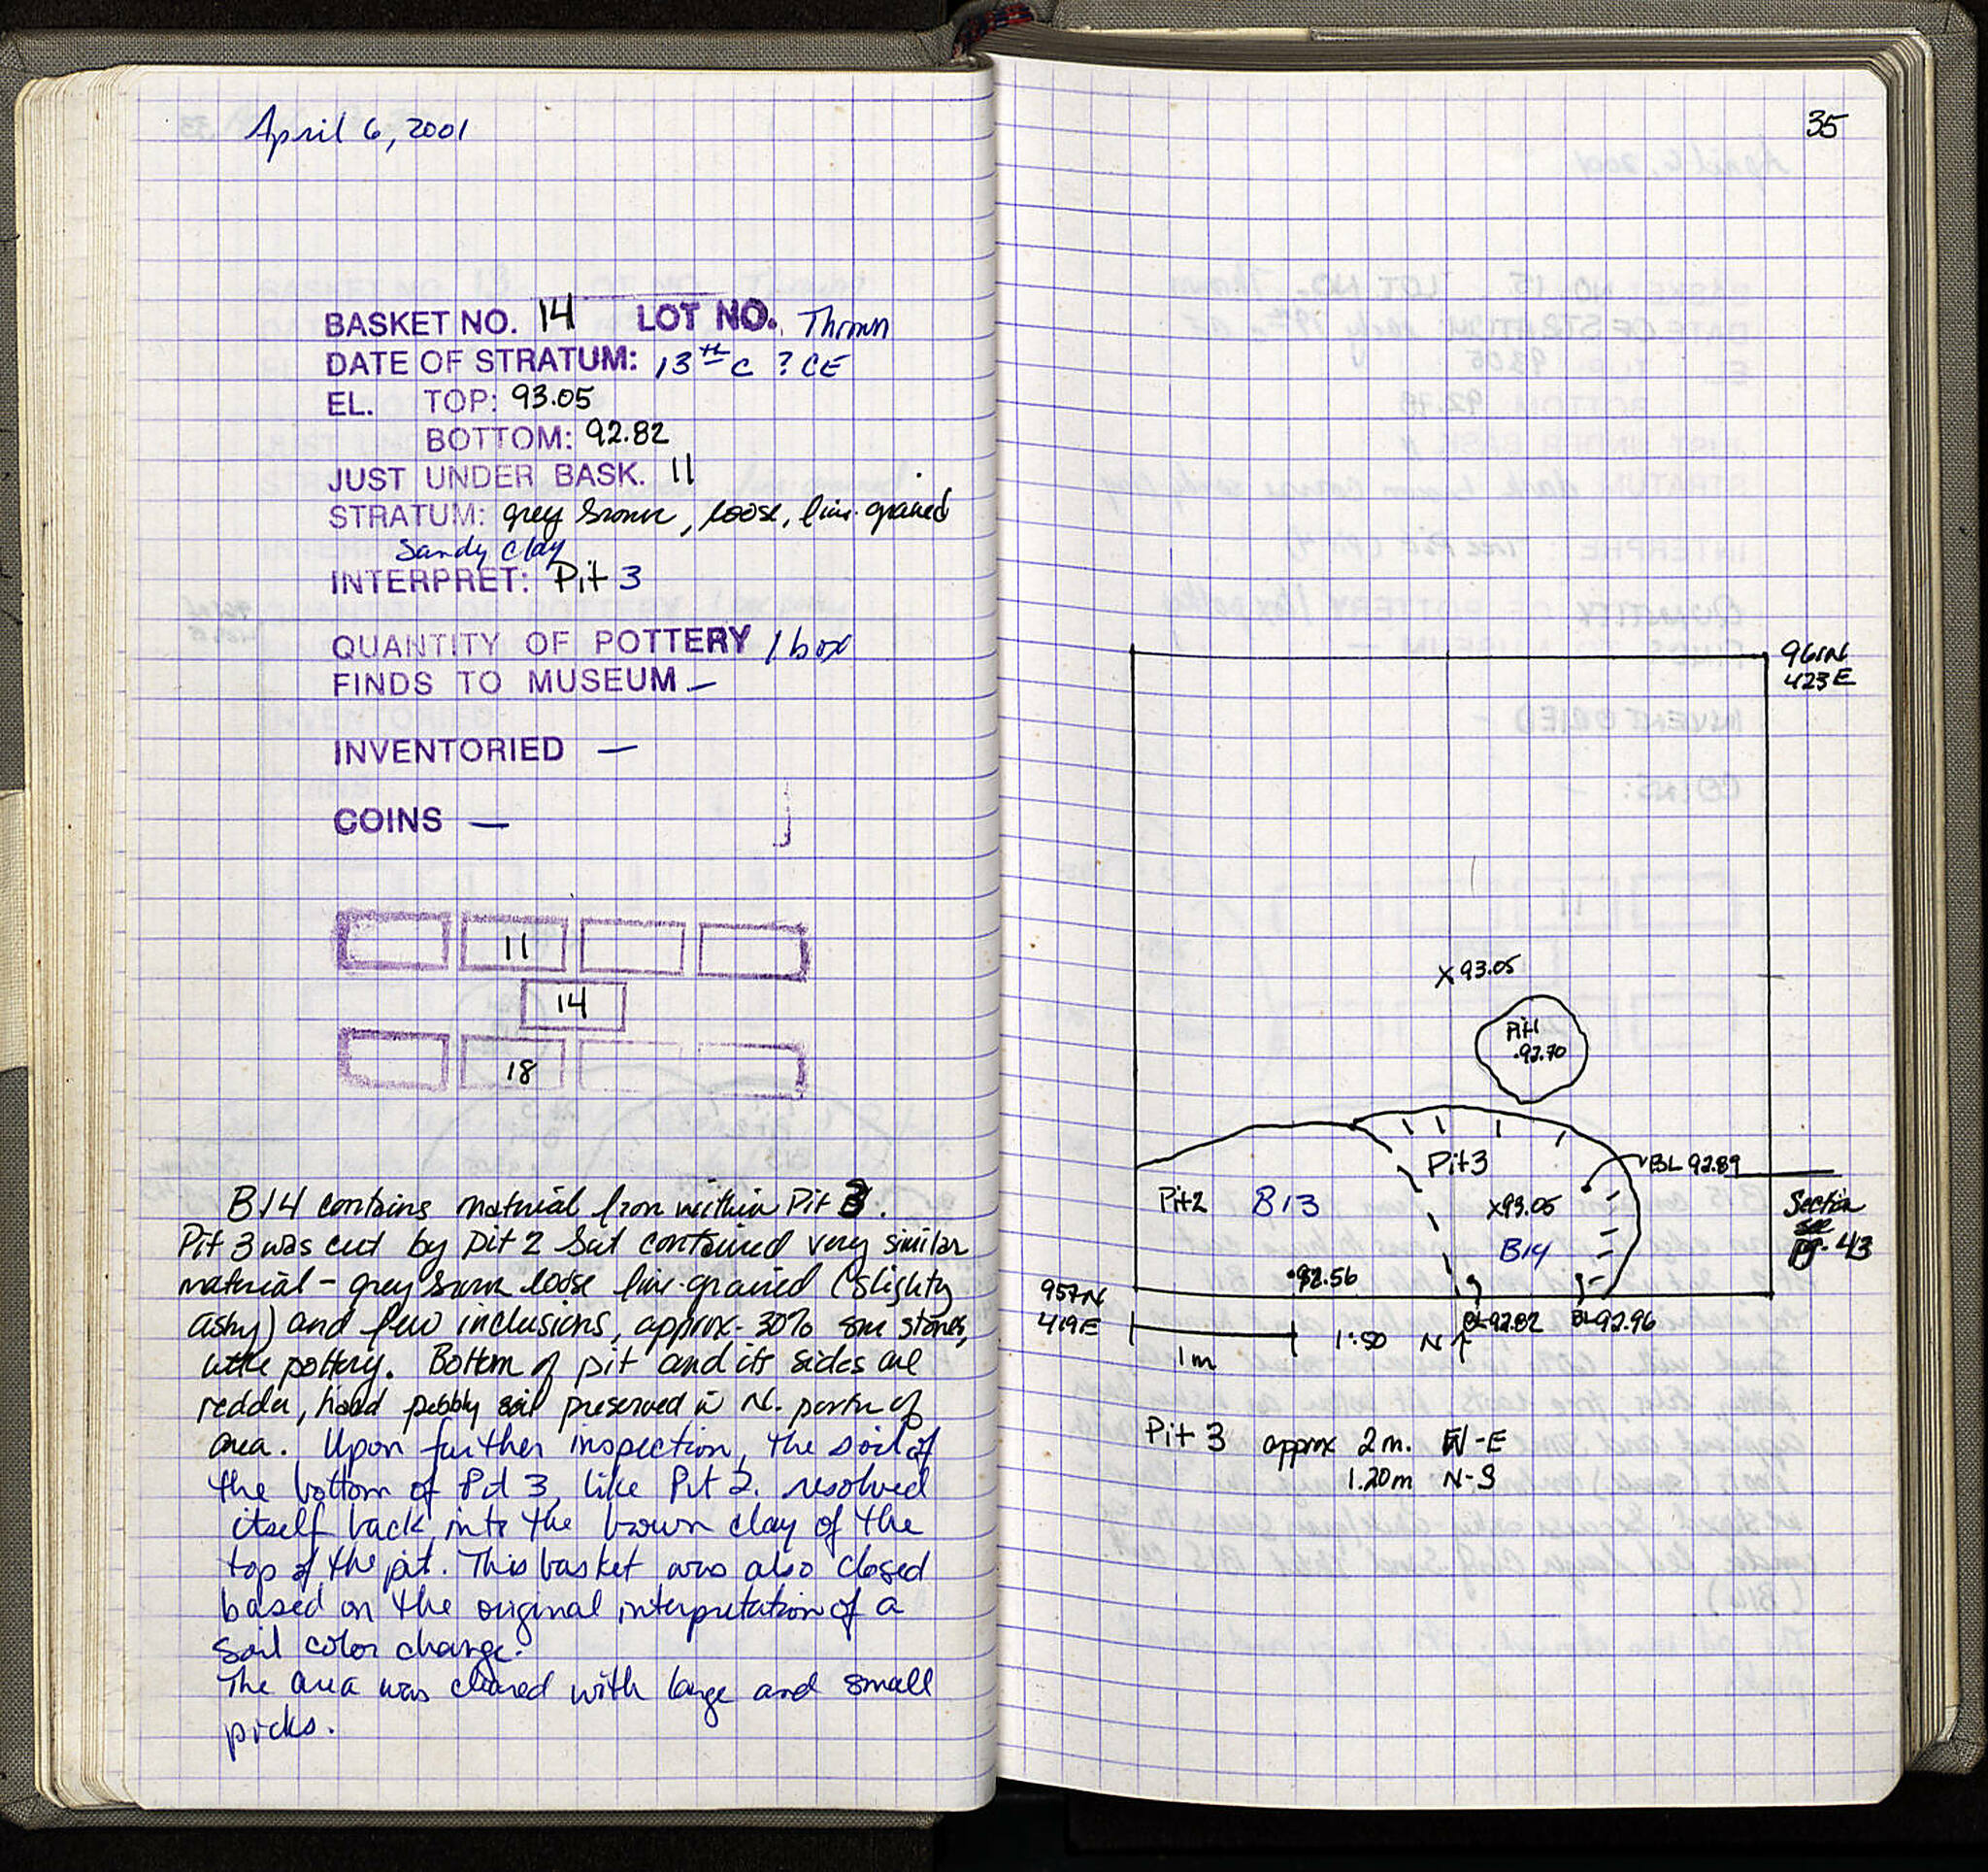 April 6, 2001
BASKET NO. 14 LOT NO. Thrown
DATE OF STRATUM: 13th c ? CE
EL. TOP: 93.05
BOTTOM: 92.82
JUST UNDER BASK. 11
STRATUM: grey brown, loose, fine-grained
Sandy clay
INTERPRET: Pit 3
QUANTITY OF POTTERY 1 box
FINDS TO MUSEUM —
INVENTORIED —
COINS —
11
14
18
B14 contains material from within Pit 3.
Pit 3 was cut by pit 2 but contained very similar
material - grey brown loose fine-grained (slighty
ashy) and few inclusions, approx. 30% sm stones,
little pottery. Bottom of pit and its sides are
redder, hard pebbly soil preserved in N. portn of
area. Upon further inspection, the soil of
the bottom of Pit 3, like Pit 2, resolved
itself back into the brown clay of the
top of the pit. This basket was also closed
based on the original interpretation of a
soil color change.
The area was cleared with large and small
picks.
35
961N
423E
X 93.05
Pit 1
.92.70
Pit 3
BL 92.89
Pit 2 B13
X93.05
Section
see
pg. 43
B14
.92.56
957N
419E
BL 92.82 BL 92.96
1m
1:50 N↑
Pit 3 approx 2m. W-E
1.20m N-S